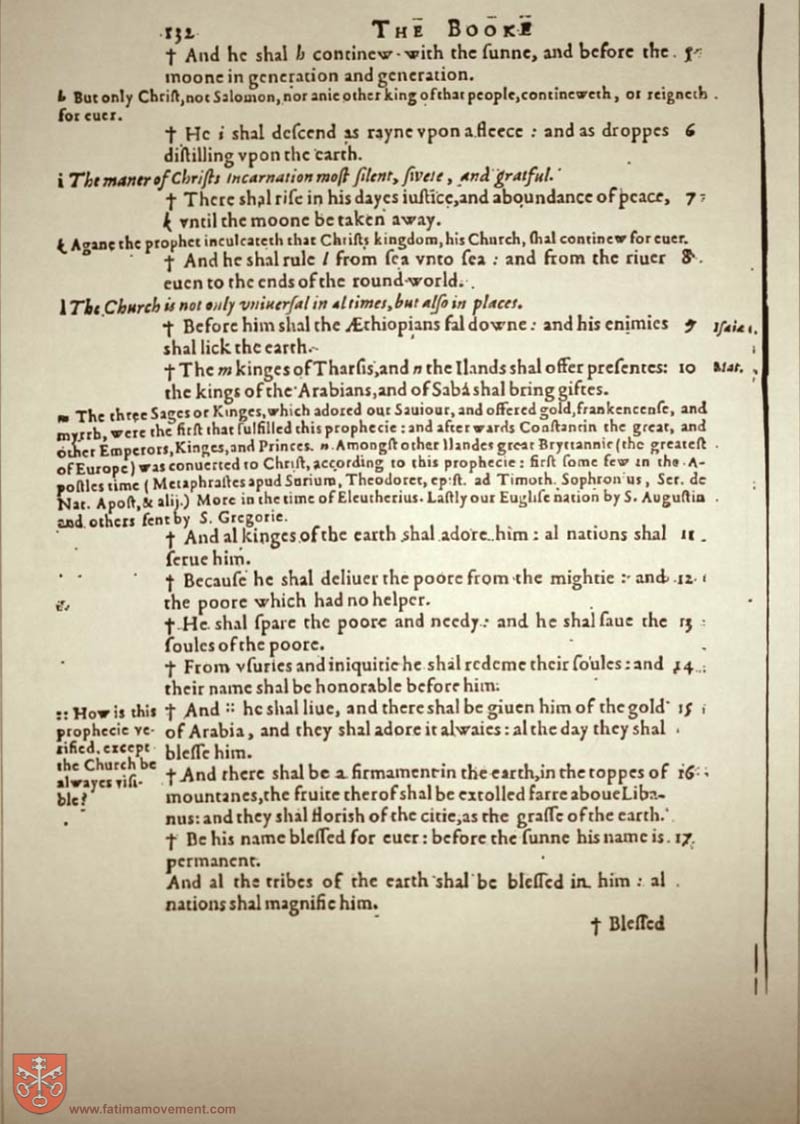 132 THE BOOKE
† And he shal h continew with the ſunne, and before the 5
moone in generation and generation.
h But only Chriſt, not Salomon, nor anie other king of that people, contineweth, or reigneth
for euer.
† He i shal deſcend as rayne vpon a fleece : and as droppes 6
diſtilling vpon the earth.
i The maner of Chriſts incarnation moſt ſilent, ſwete, and gratful.
† There shal riſe in his dayes iuſtice, and aboundance of peace, 7
k vntil the moone be taken away.
k Agane the prophet inculcateth that Chriſts kingdom, his Church, ſhal continew for euer.
† And he shal rule l from ſea vnto ſea : and from the riuer 8
euen to the ends of the round world.
l The Church is not only vniuerſal in al times, but alſo in places.
† Before him shal the Æthiopians fal downe : and his enimies 9 Iſaiæ
shal lick the earth.
† The m kinges of Tharſis, and n the Ilands shal offer preſentes: 10 Mat.
the kings of the Arabians, and of Saba shal bring giftes.
m The three Sages or Kinges, which adored our Sauiour, and offered gold, frankencenſe, and
myrrh, were the firſt that fulfilled this prophecie : and afterwards Conſtantin the great, and
other Emperors, Kinges, and Princes. n Amongſt other Ilandes great Bryttannie (the greateſt
of Europe) was conuerted to Chriſt, according to this prophecie : firſt ſome few in the A-
poſtles time (Metaphraſtes apud Surium, Theodoret, epiſt. ad Timoth. Sophronius, Ser. de
Nat. Apoſt, & alij.) More in the time of Eleutherius. Laſtly our Engliſe nation by S. Auguſtin
and others ſent by S. Gregorie.
† And al kinges of the earth shal adore him : al nations shal 11
ſerue him.
† Becauſe he shal deliuer the poore from the mightie : and 12
the poore which had no helper.
† He shal ſpare the poore and needy : and he shal ſaue the 13
ſoules of the poore.
† From vſuries and iniquitie he shal redeme their ſoules : and 14
their name shal be honorable before him.
:: How is this
prophecie ve-
rified, except
the Church be
alwayes viſi-
ble?
† And :: he shal liue, and there shal be giuen him of the gold 15
of Arabia, and they shal adore it alwaies : al the day they shal
bleſſe him.
† And there shal be a firmament in the earth, in the toppes of 16
mountanes, the fruite therof shal be extolled farre aboue Liba-
nus: and they shal florish of the citie, as the graſſe of the earth.
† Be his name bleſſed for euer : before the ſunne his name is 17
permanent.
And al the tribes of the earth shal be bleſſed in him : al
nations shal magnifie him.
† Bleſſed
www.fatimamovement.com